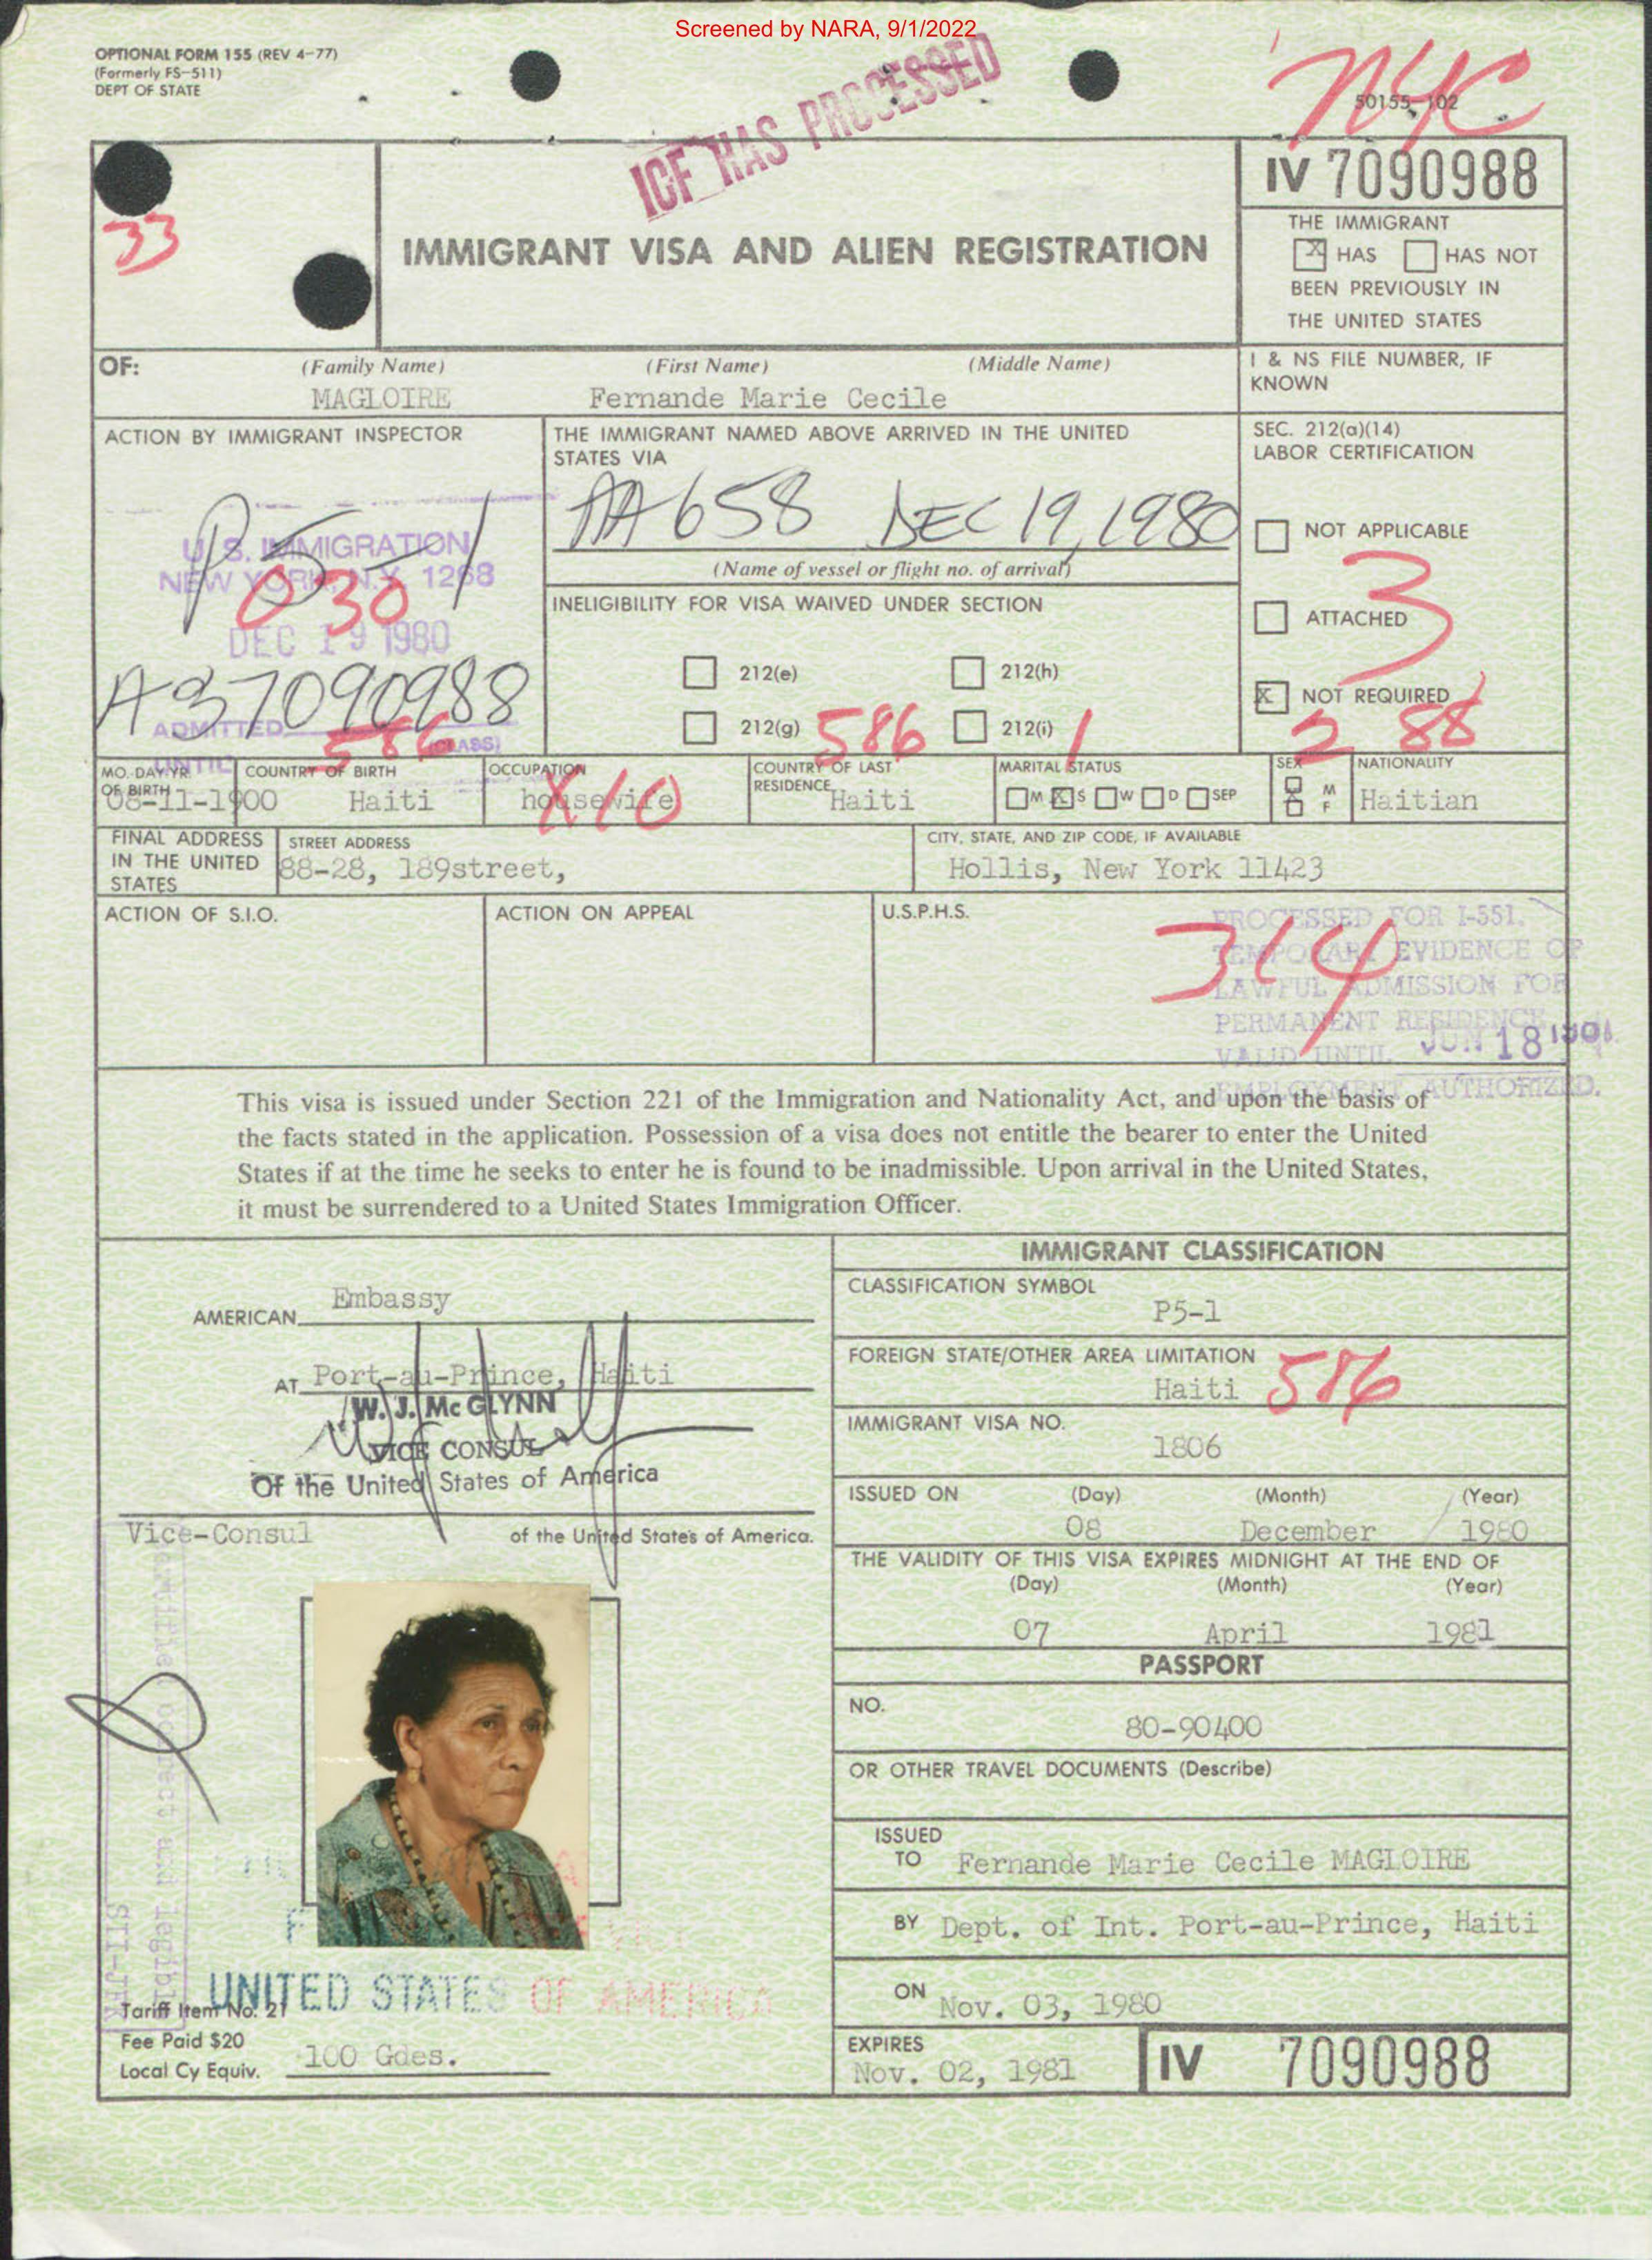 Screened by NARA, 9/1/2022
OPTIONAL FORM 155 (REV 4-77)
(Formerly FS-511)
DEPT OF STATE
ICF HAS PROCESSED
NYC
50155-102
33
IMMIGRANT VISA AND ALIEN REGISTRATION
IV 7090988
THE IMMIGRANT
X HAS HAS NOT
BEEN PREVIOUSLY IN
THE UNITED STATES
OF: (Family Name) (First Name) (Middle Name)
MAGLOIRE Fernande Marie Cecile
I & NS FILE NUMBER, IF
KNOWN
ACTION BY IMMIGRANT INSPECTOR
U.S. IMMIGRATION
NEW YORK, N.Y. 1268
P5-1
030
DEC 19 1980
A37090988
ADMITTED
586
(CLASS)
UNTIL
THE IMMIGRANT NAMED ABOVE ARRIVED IN THE UNITED
STATES VIA
AA 658 DEC 19, 1980
(Name of vessel or flight no. of arrival)
INELIGIBILITY FOR VISA WAIVED UNDER SECTION
212(e) 212(h)
212(g) 586 212(i) 1
SEC. 212(a)(14)
LABOR CERTIFICATION
NOT APPLICABLE
3
ATTACHED
X NOT REQUIRED
2 88
MO. DAY YR.
OF BIRTH
08-11-1900
COUNTRY OF BIRTH
Haiti
OCCUPATION
housewife
X10
COUNTRY OF LAST
RESIDENCE
Haiti
MARITAL STATUS
M X S W D SEP
SEX
M
X F
NATIONALITY
Haitian
FINAL ADDRESS
IN THE UNITED
STATES
STREET ADDRESS
88-28, 189street,
CITY, STATE, AND ZIP CODE, IF AVAILABLE
Hollis, New York 11423
ACTION OF S.I.O.
ACTION ON APPEAL
U.S.P.H.S.
314
PROCESSED FOR I-551.
TEMPORARY EVIDENCE OF
LAWFUL ADMISSION FOR
PERMANENT RESIDENCE
VALID UNTIL JUN 18
EMPLOYMENT AUTHORIZED.
This visa is issued under Section 221 of the Immigration and Nationality Act, and upon the basis of
the facts stated in the application. Possession of a visa does not entitle the bearer to enter the United
States if at the time he seeks to enter he is found to be inadmissible. Upon arrival in the United States,
it must be surrendered to a United States Immigration Officer.
AMERICAN Embassy
AT Port-au-Prince, Haiti
W. J. Mc GLYNN
VICE CONSUL
Of the United States of America
Vice-Consul of the United States of America.
IMMIGRANT CLASSIFICATION
CLASSIFICATION SYMBOL
P5-1
FOREIGN STATE/OTHER AREA LIMITATION
Haiti 586
IMMIGRANT VISA NO.
1806
ISSUED ON (Day) (Month) (Year)
08 December 1980
THE VALIDITY OF THIS VISA EXPIRES MIDNIGHT AT THE END OF
(Day) (Month) (Year)
07 April 1981
PASSPORT
NO.
80-90400
OR OTHER TRAVEL DOCUMENTS (Describe)
ISSUED
TO Fernande Marie Cecile MAGLOIRE
BY Dept. of Int. Port-au-Prince, Haiti
ON Nov. 03, 1980
EXPIRES
Nov. 02, 1981
IV 7090988
correct and legible
UNITED STATES OF AMERICA
Tariff Item No. 21
Fee Paid $20
Local Cy Equiv. 100 Gdes.